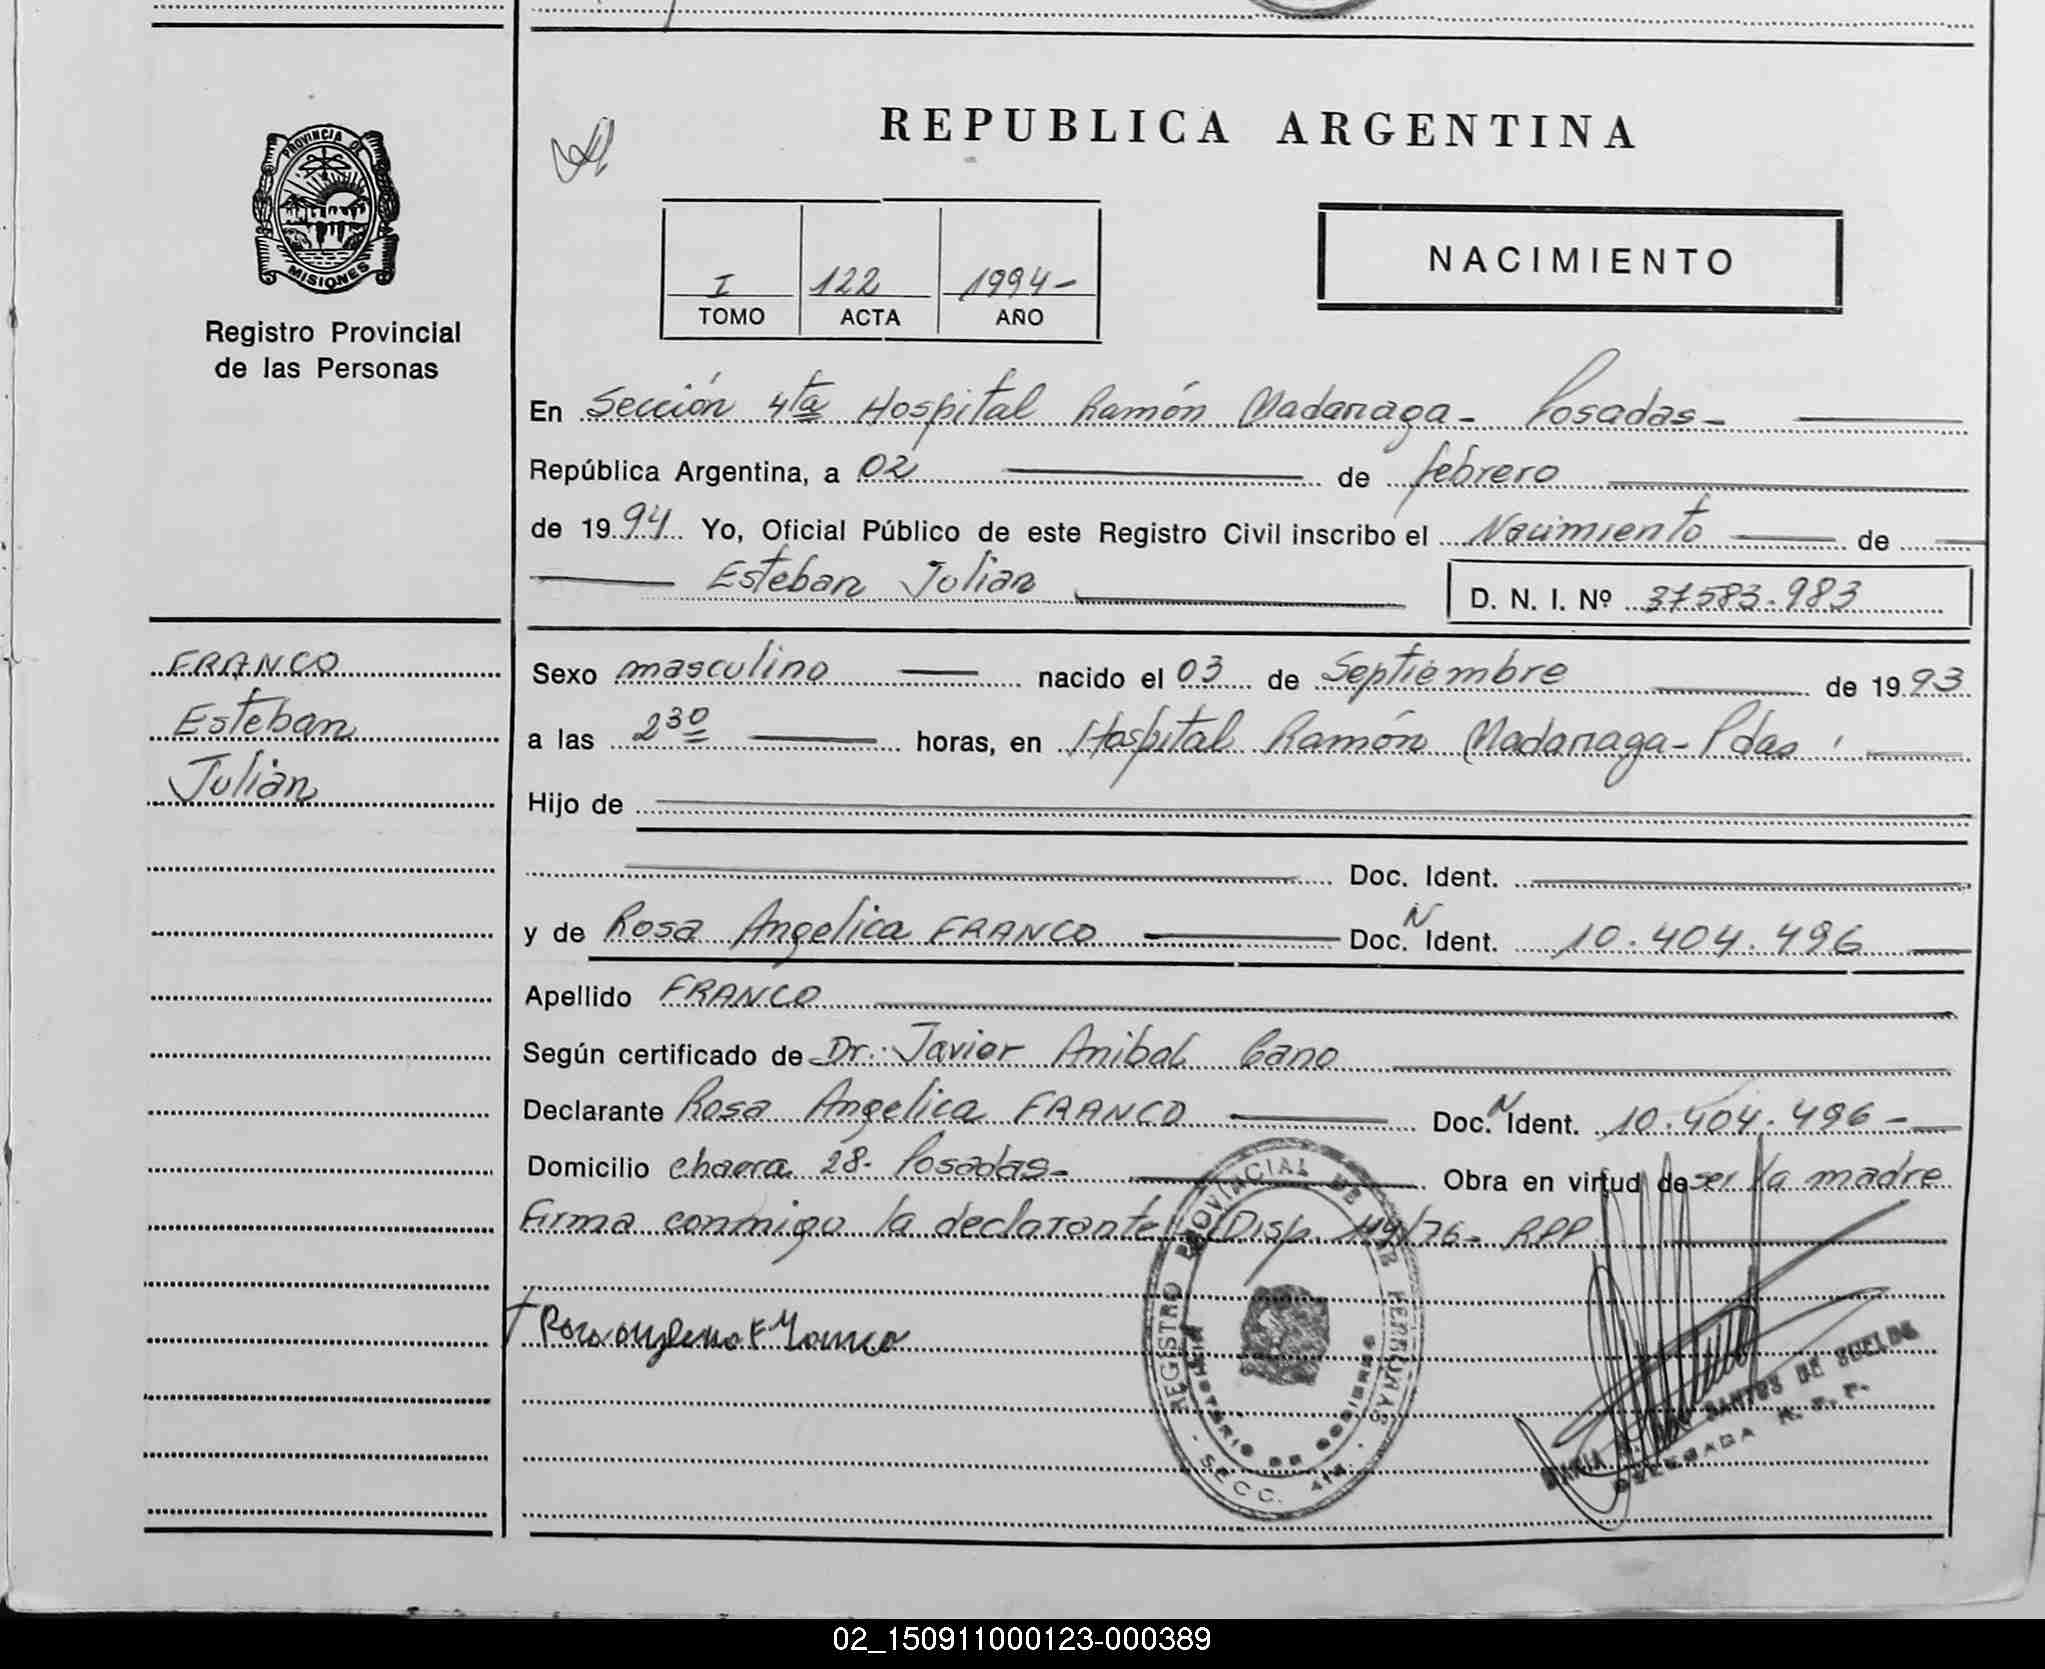 PROVINCIA DE
MISIONES
Registro Provincial
de las Personas
FRANCO
Esteban
Julian
REPUBLICA ARGENTINA
I 122 1994-
TOMO ACTA AÑO
NACIMIENTO
En Sección 4ta Hospital Ramón Madariaga - Posadas -
República Argentina, a 02 de febrero
de 1994 Yo, Oficial Público de este Registro Civil inscribo el Nacimiento de
Esteban Julian D. N. I. Nº 37583.983
Sexo masculino nacido el 03 de Septiembre de 1993
a las 2 30 horas, en Hospital Ramón Madariaga - Pdas
Hijo de
Doc. Ident.
y de Rosa Angelica FRANCO Doc. N Ident. 10.404.496
Apellido FRANCO
Según certificado de Dr. Javier Anibal Cano
Declarante Rosa Angelica FRANCO Doc. N Ident. 10.404.496 -
Domicilio chacra 28. Posadas - Obra en virtud de ser la madre
Firma conmigo la declarante Disp. /76 - RPP
REGISTRO PROVINCIAL DE LAS PERSONAS
MINISTERIO DE GOBIERNO
SECC. 4ta.
MARIA SANTOS DE SUELDO
DELEGADA R. P. P.
02_150911000123-000389